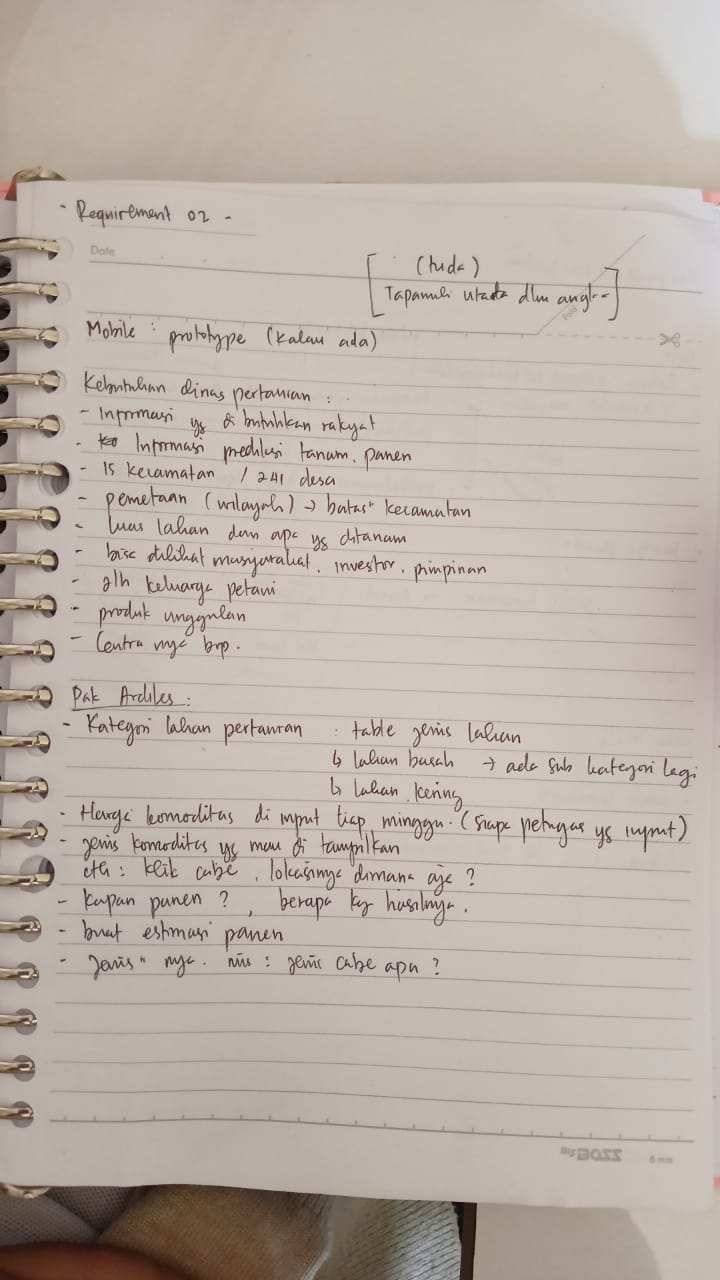 - Requirement 02 -
Date
(tuda)
Tapanuli utara dlm angka
Fold
Mobile : prototype (kalau ada)
Kebutuhan dinas pertanian :
- Informasi yg di butuhkan rakyat
- Informasi prediksi tanam, panen
- 15 kecamatan / 241 desa
- pemetaan (wilayah) → batas" kecamatan
- luas lahan dan apa yg ditanam
- bisa dilihat masyarakat, investor, pimpinan
- jlh keluarga petani
- produk unggulan
- Centra nya brp.
Pak Ardiles :
- Kategori lahan pertanian : table jenis lahan
↳ lahan basah → ada sub kategori lagi
↳ lahan kering
- Harga komoditas di input tiap minggu. (siapa petugas yg input)
- jenis komoditas yg mau di tampilkan
cth : klik cabe, lokasinya dimana aja ?
- Kapan panen ? , berapa kg hasilnya.
- buat estimasi panen
- Jenis" nya. mis : jenis cabe apa ?
BIG BOSS 6 mm